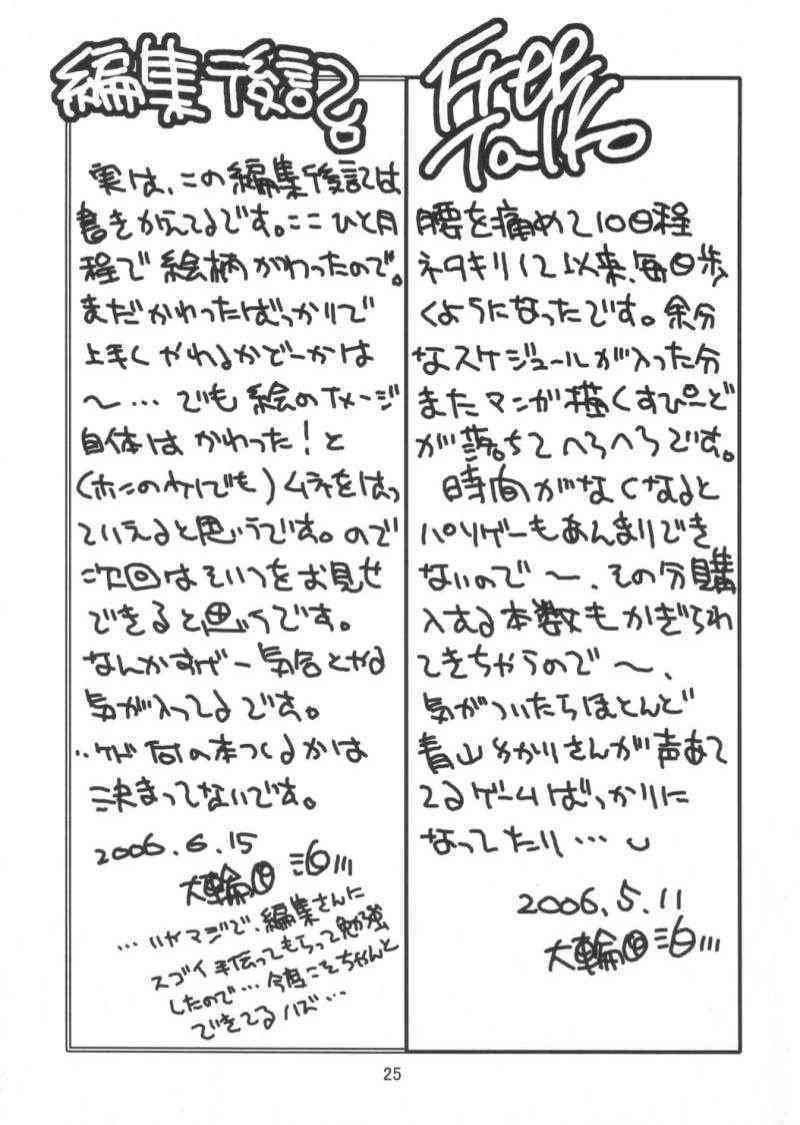 編集後記
実は、この編集後記は
書きかえてるです。ここひと月
程で絵柄がわったので。
まだかわったばっかりで
上手くやれるかどーかは
〜…でも絵のイメージ
自体はかわった!と
(ホンのわけでも)ムネをはっ
ていえると思うです。ので
次回はそいつをお見せ
できると思うです。
なんかすげー気合とかる
気が入ってるです。
‥ケド何の本つくるかは
決まってないです。
2006.6.15
…いやマジで、編集さんに
スゴイ手伝ってもらって勉強
したので…今度こそちゃんと
できてるハズ…
Free
Talk
腰を痛めて10日程
ネタキリして以来、毎日歩
くようになったです。余分
なスケジュールが入った分
またマンが描くすぴーど
が落ちてへろへろです。
時間がなくなると
パソゲーもあんまりでき
ないので〜、その分購
入する本数もかぎられ
てきちゃうので〜、
気がついたらほとんど
青山ゆかりさんが声あて
てるゲームばっかりに
なってたり…
2006.5.11
25